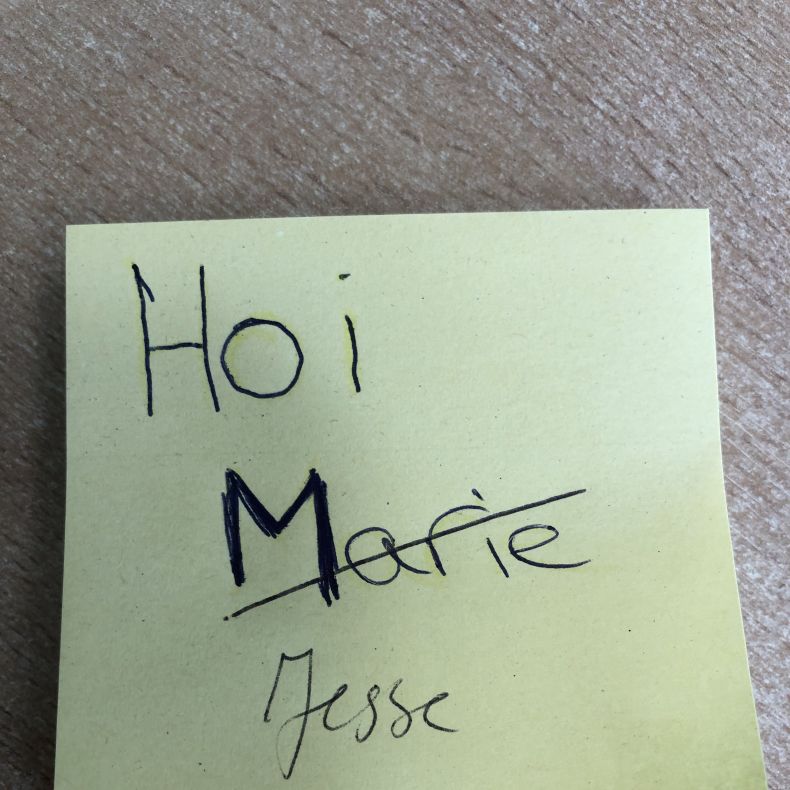 Hoi
Marie
Jesse